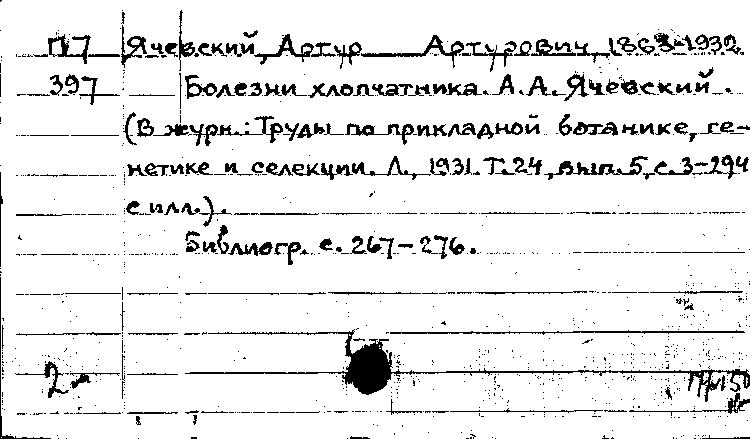 П7 Ячевский, Артур Артурович, 1863-1932.
397 Болезни хлопчатника. А.А. Ячевский.
(В журн.: Труды по прикладной ботанике, ге-
нетике и селекции. Л., 1931. Т. 24, вып. 5, с. 3-294
с илл.).
Библиогр. с. 267-276.